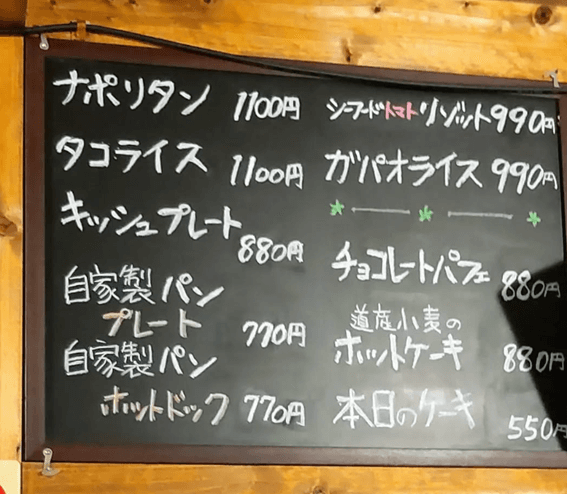 ナポリタン 1100円
タコライス 1100円
キッシュプレート
880円
自家製パン
プレート 770円
自家製パン
ホットドック 770円
シーフードトマトリゾット 990円
ガパオライス 990円
チョコレートパフェ 880円
道産小麦の
ホットケーキ 880円
本日のケーキ 550円